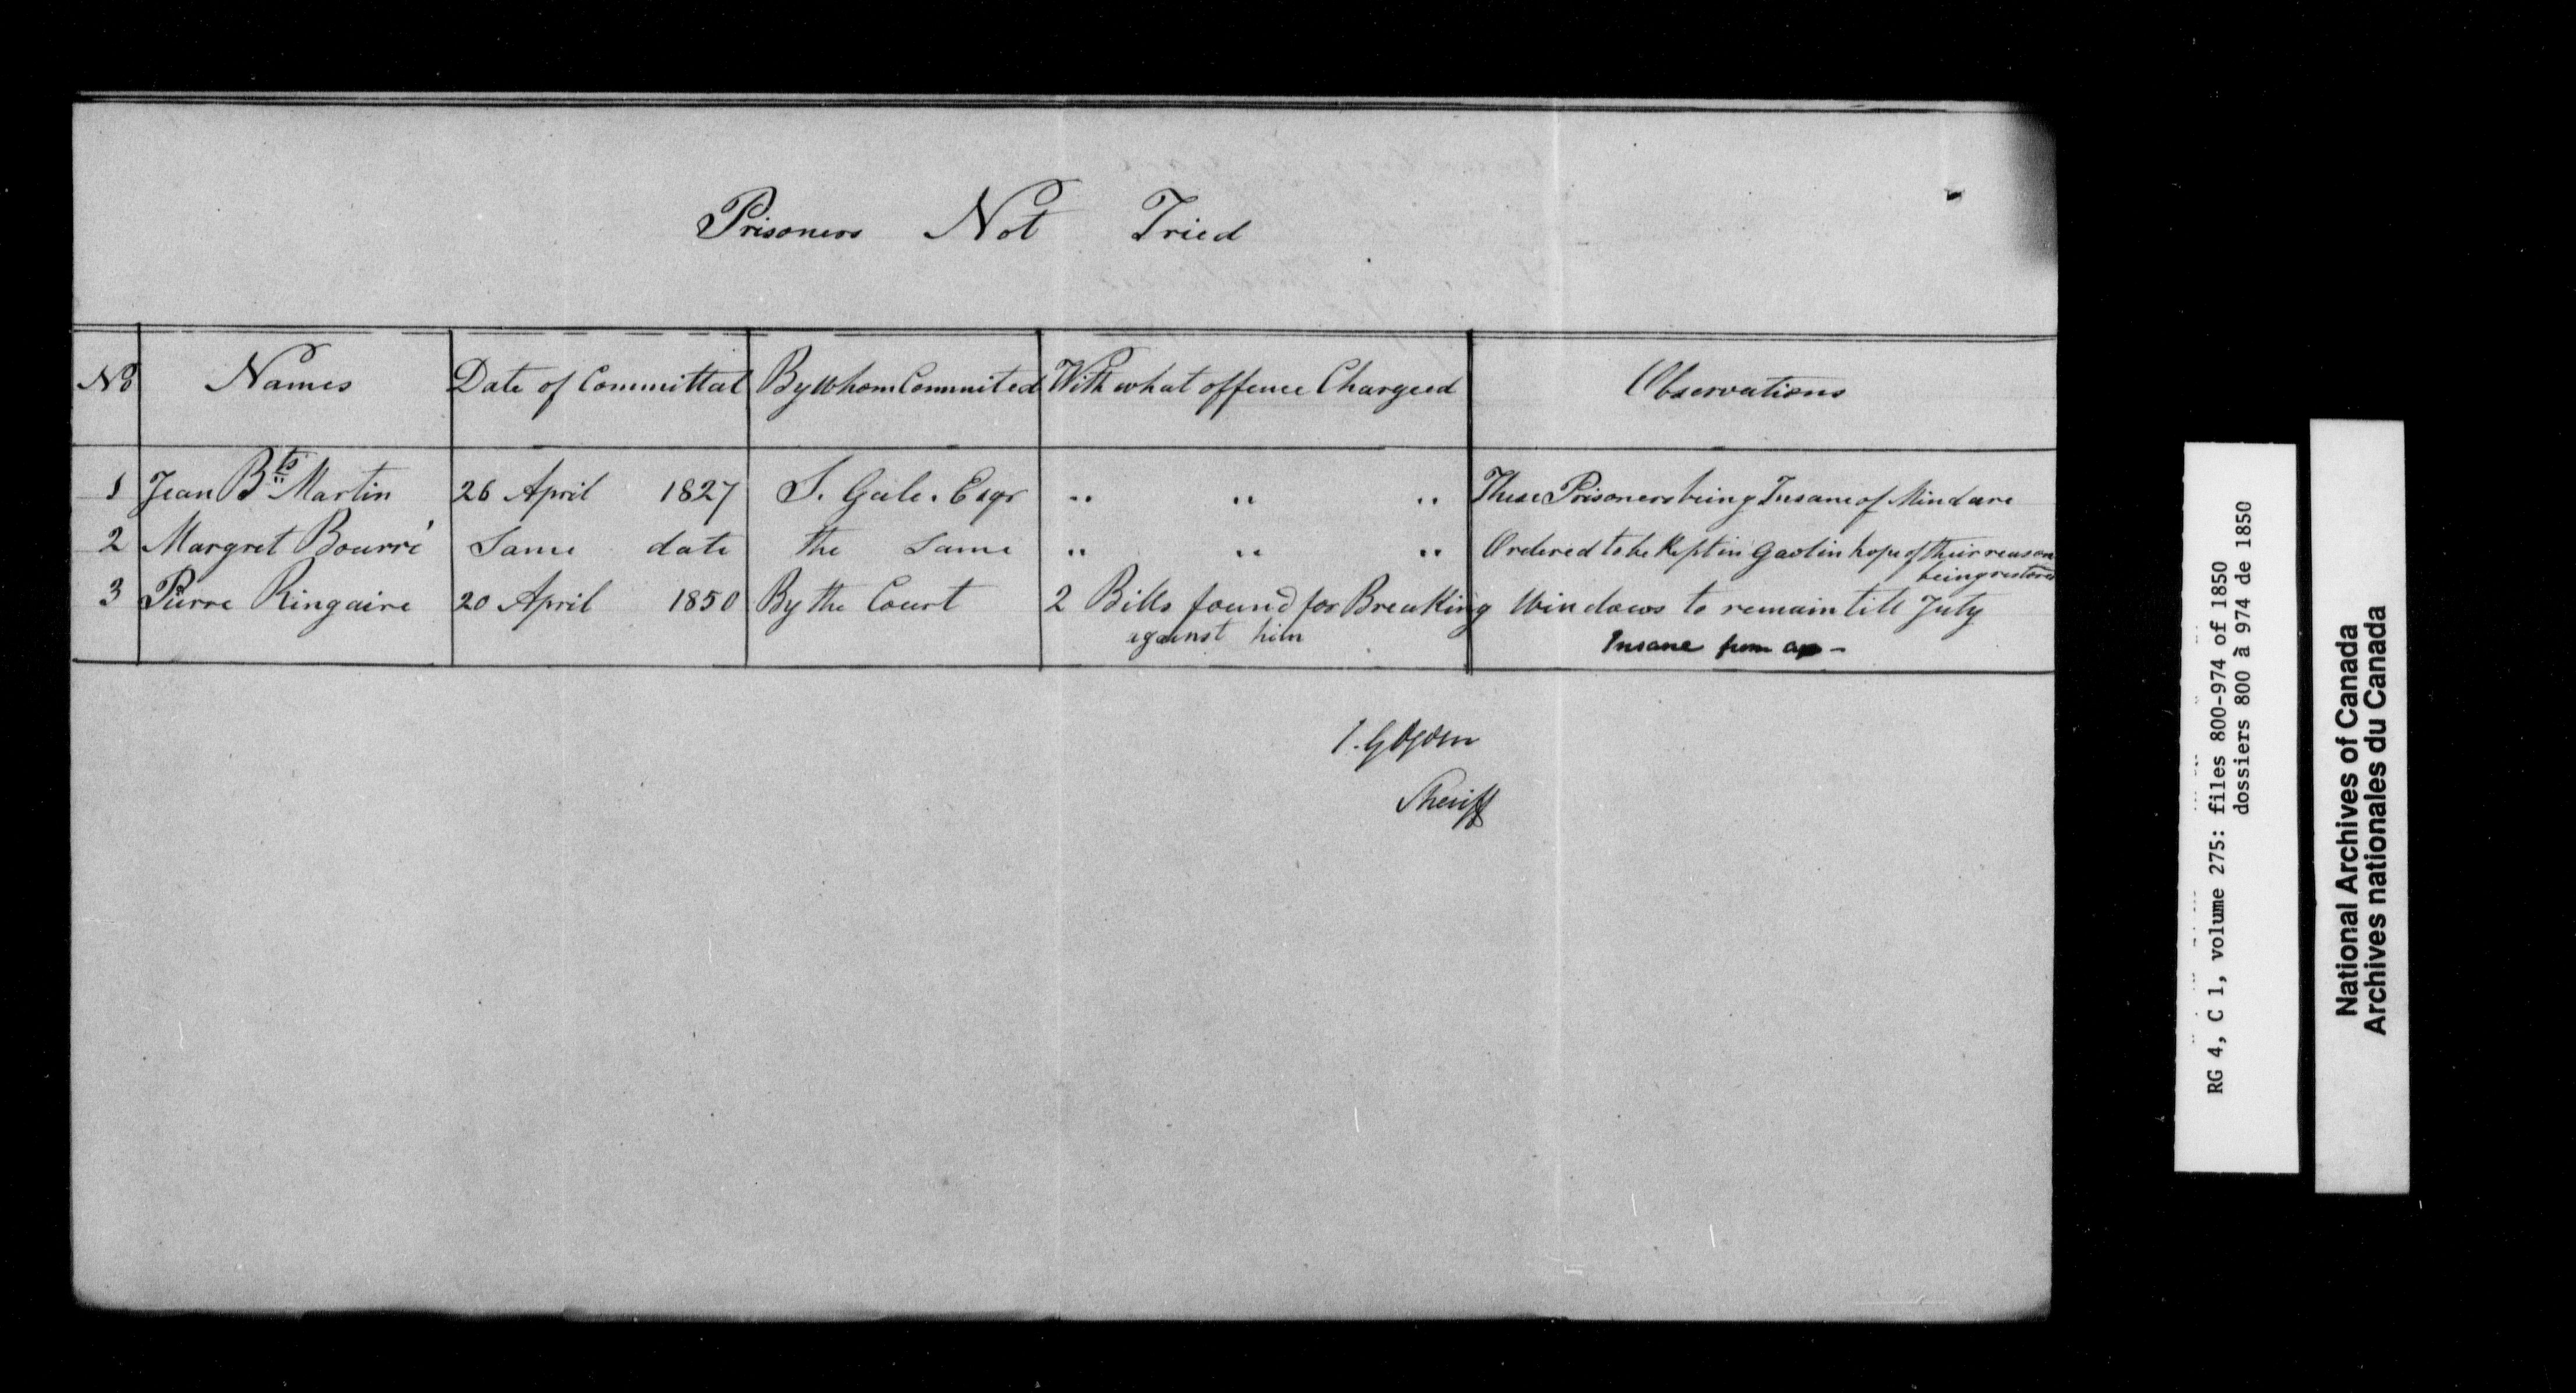 Prisoners Not Tried
No Names Date of Committal By Whom Commited With what offence Chargeed Observations
1 Jean Bts Martin 26 April 1827 S. Gale. Esqr " " " These Prisoners being Insane of Mind are
2 Margret Bourré Same date the Same " " " Ordered to be Kept in Gaol in hope of their reason
being restored
3 Pierre Ringaire 20 April 1850 By the Court 2 Bills found for Breaking Windows to remain till July
against him
Insane from
Sheriff
RG 4, C 1, volume 275: files 800-974 of 1850
dossiers 800 à 974 de 1850
National Archives of Canada
Archives nationales du Canada